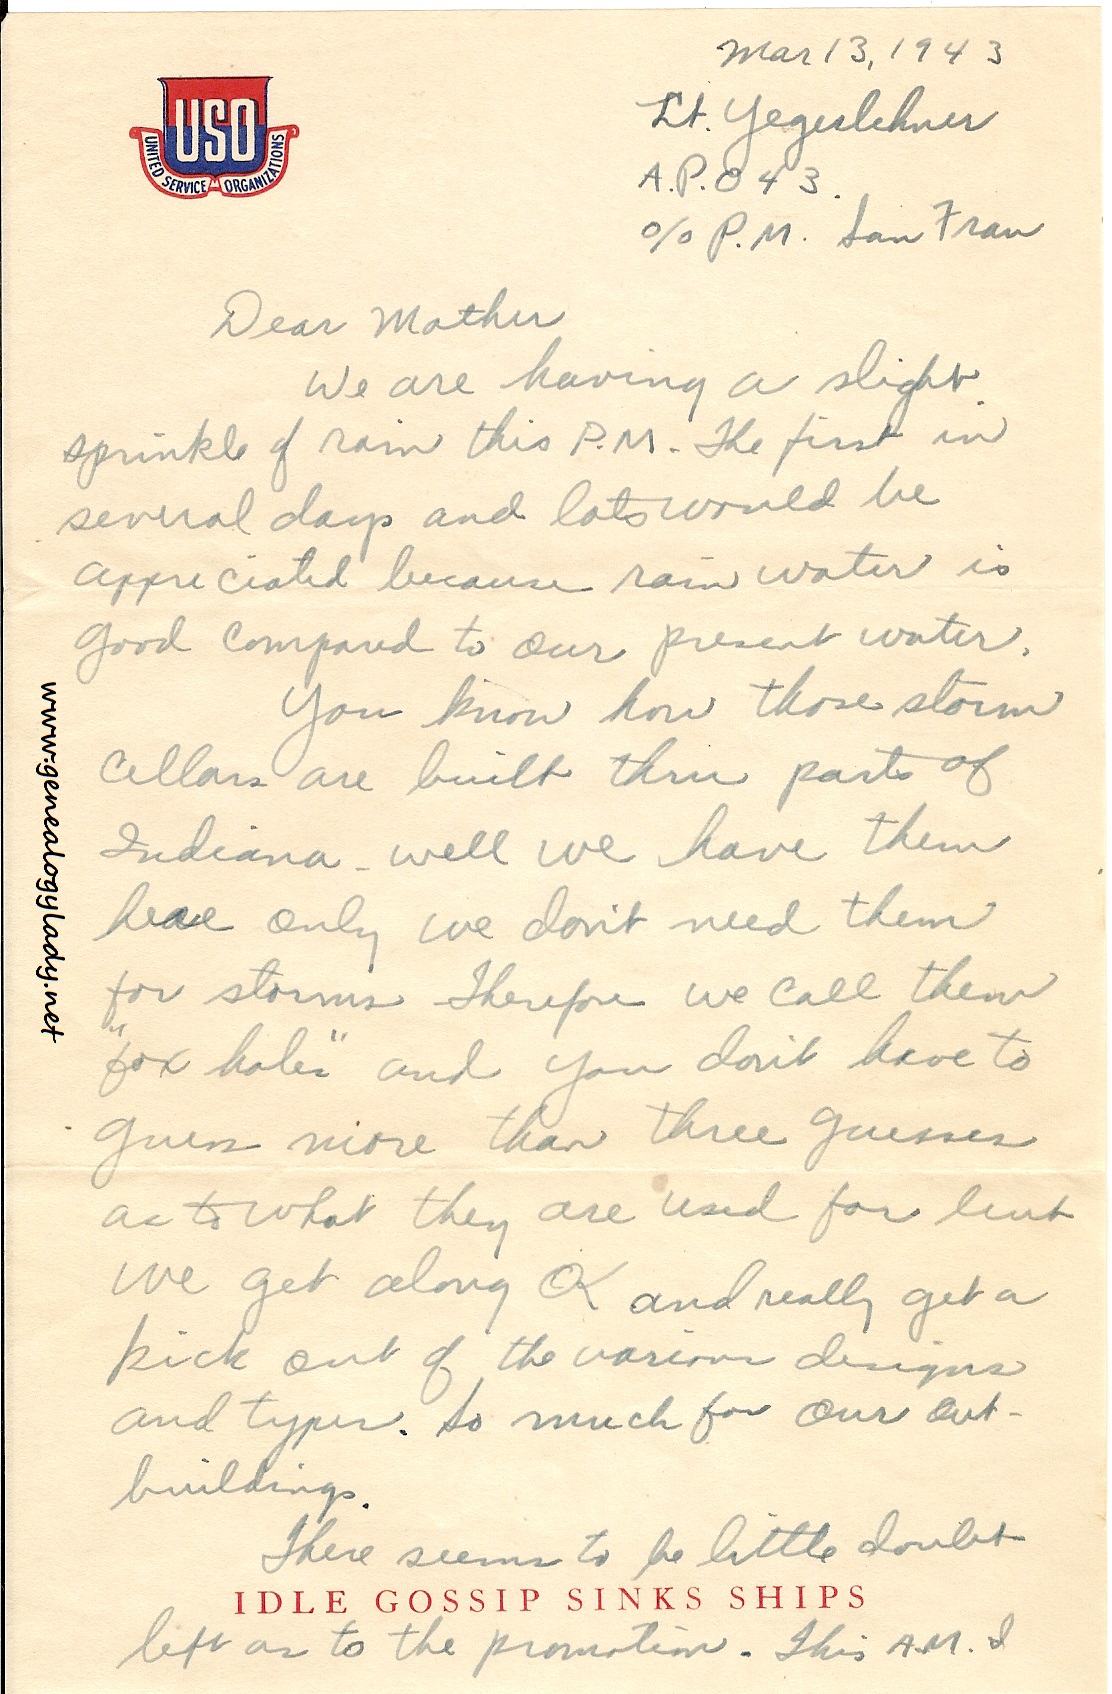 Mar 13, 1943
USO
UNITED SERVICE ORGANIZATIONS
Lt. Yegerlehner
A.P.O 43.
c/o P.M. San Fran
Dear Mother
We are having a slight
sprinkle of rain this P.M. The first in
several days and lots would be
appreciated because rain water is
good compared to our present water.
You know how those storm
cellars are built thru parts of
Indiana - well we have them
here only we don't need them
for storms Therefore we call them
"fox holes" and you don't have to
guess more than three guesses
as to what they are used for but
we get along OK and really get a
kick out of the various designs
and types. So much for our out-
buildings.
There seems to be little doubt
IDLE GOSSIP SINKS SHIPS
left as to the promotion. This A.M. I
www.genealogylady.net